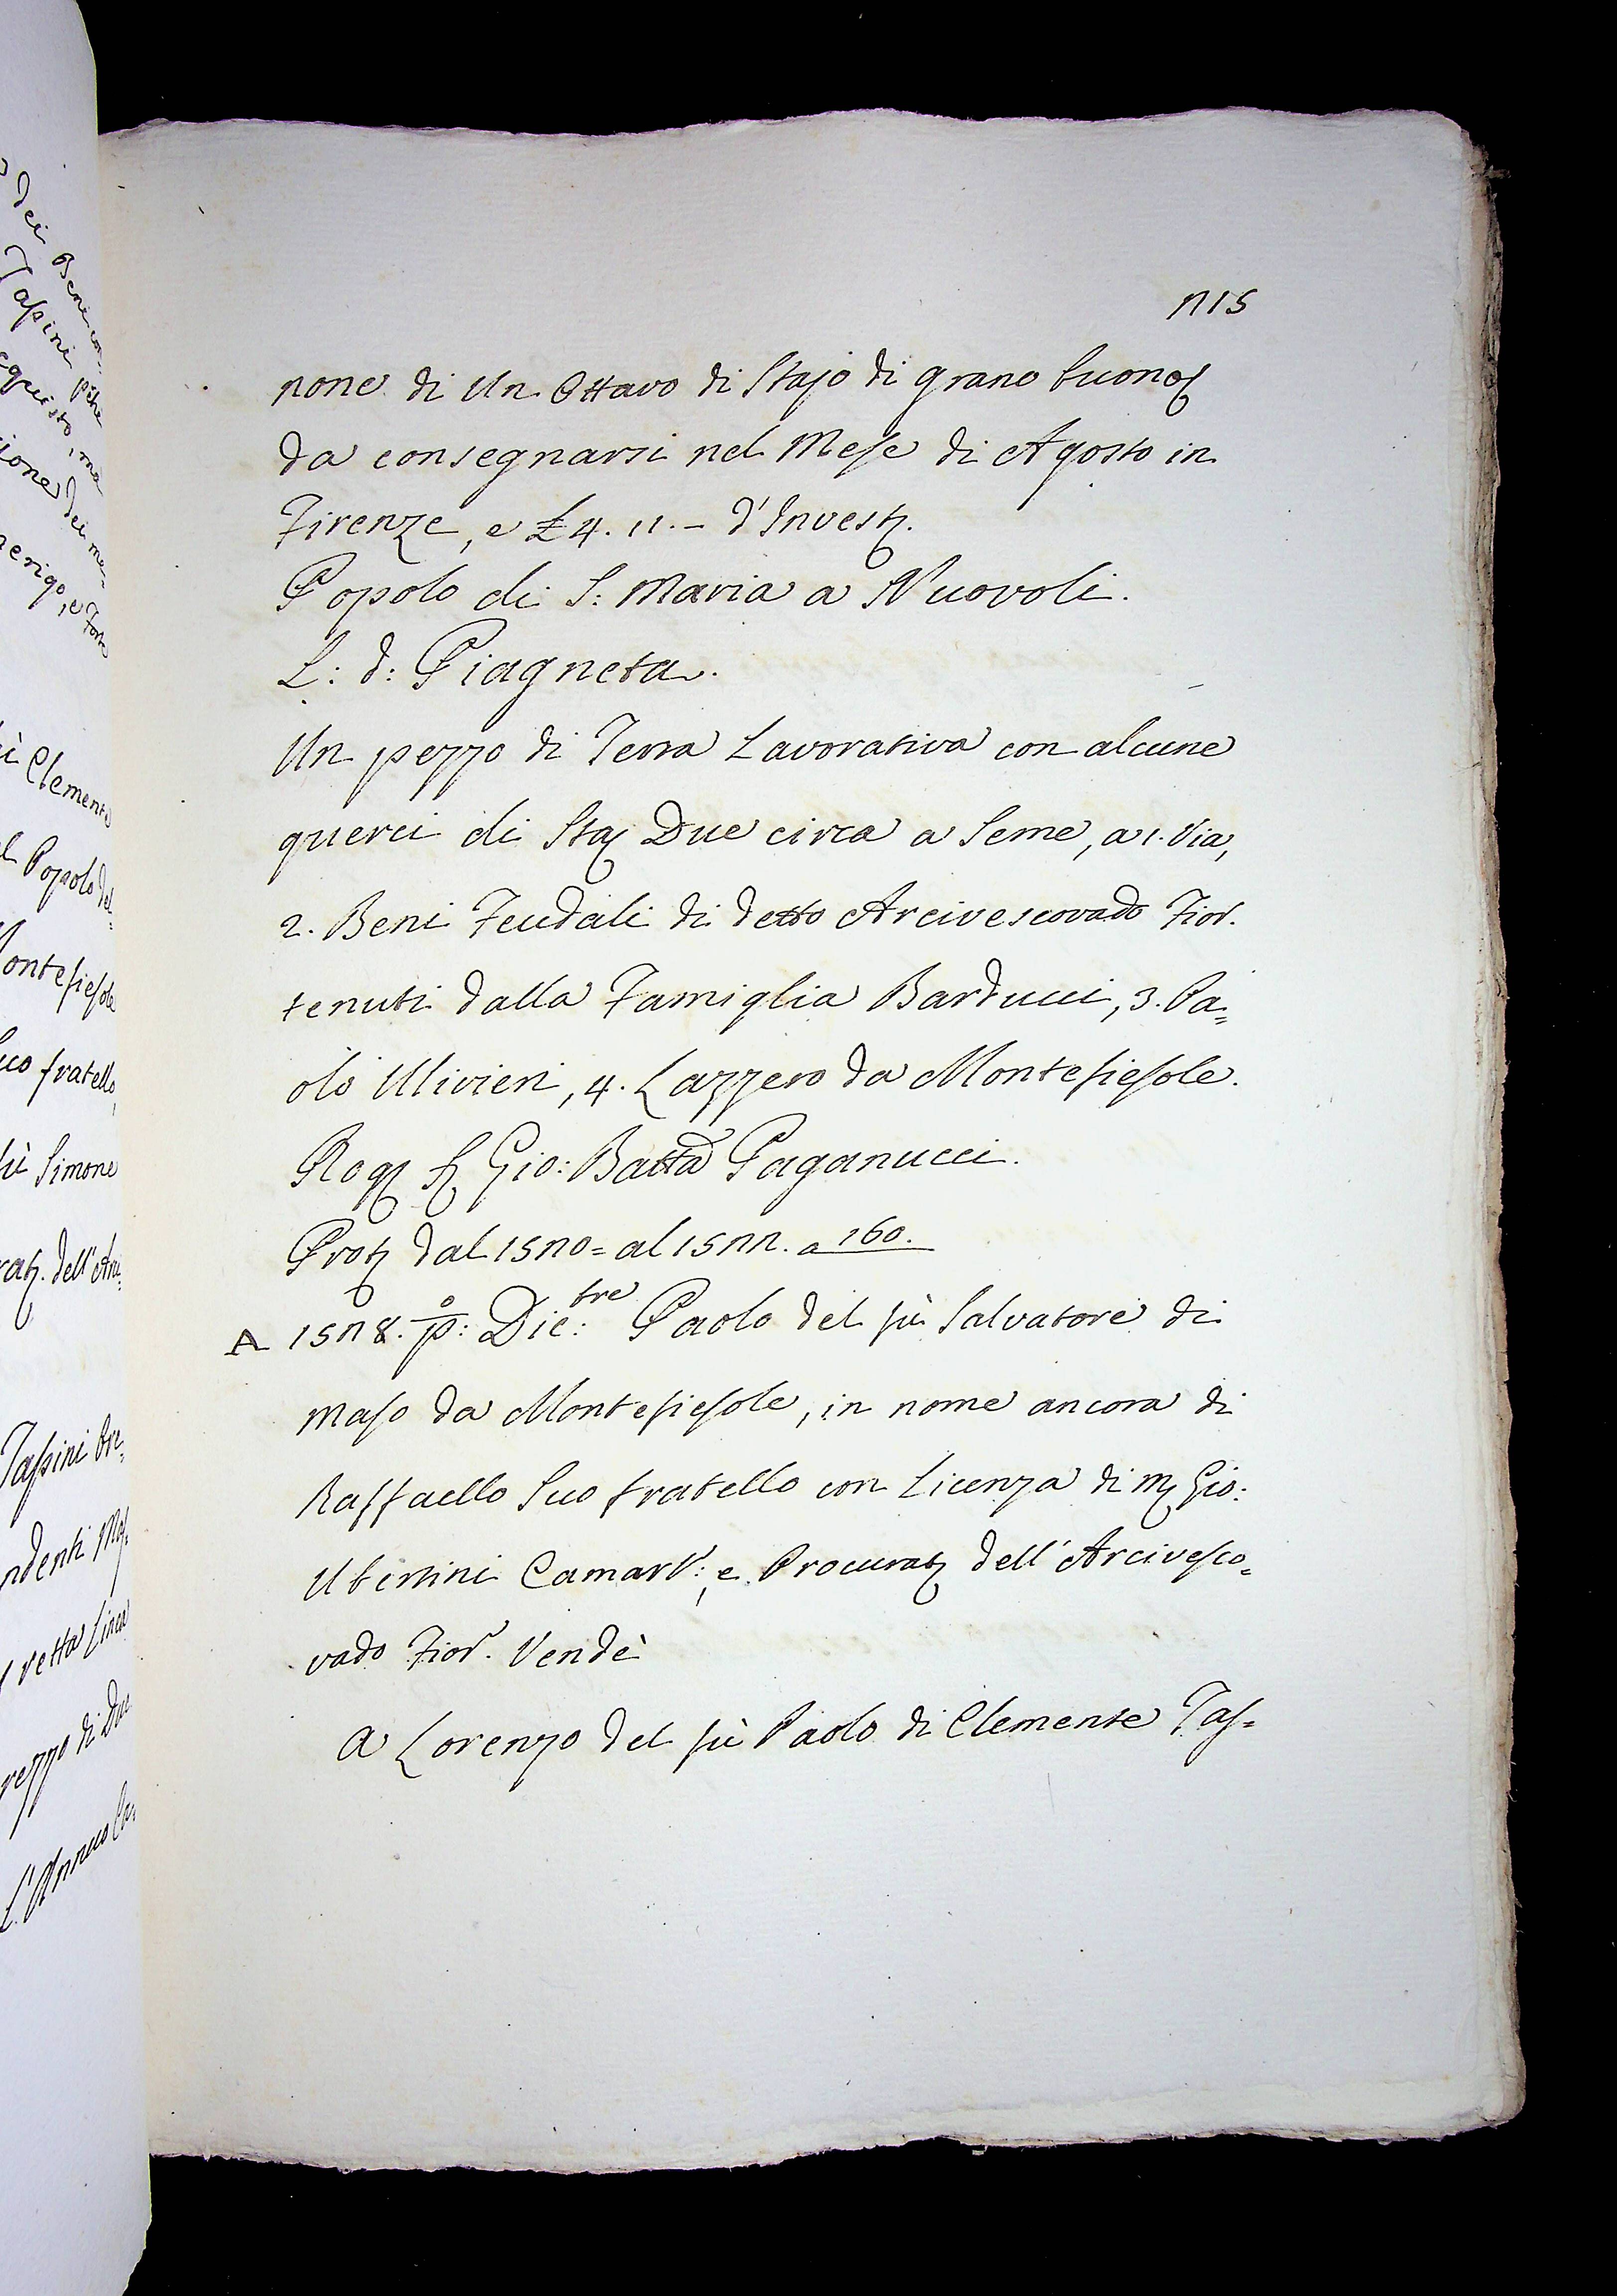 715
none di Un Ottavo di Stajo di grano buono
da consegnarsi nel Mese di Agosto in
Firenze, e £ 4. 11. – d'Invest.
Popolo di S: Maria a Nuovoli.
L: d: Piagneta.
Un pezzo di Terra Lavorativa con alcune
querci di Sta Due circa a Seme, a 1. Via,
2. Beni Feudali di detto Arcivescovado Fior.
tenuti dalla Famiglia Barducci, 3. Pa=
olo Ulivieri, 4. Lazzero da Montefiesole.
Rog S Gio: Batta Paganucci.
Prot dal 1570 = al 1577. a 160.
A 1578. p:o Dic:bre Paolo del fù Salvatore di
Maso da Montefiesole, in nome ancora di
Raffaello Suo fratello con Licenza di M Gio:
Ubertini Camarl:, e Procurat dell'Arcivesco=
vado Fior. Vendè
A Lorenzo del fù Paolo di Clemente Tas=
dei Beni con=
Tassini
ione dei
Clemente
l Popolo del=
ontefiesole
uo fratello,
fù Simone
dell'Arci=
Tassini
retta Linea
rezzo di Due
L'Annuo Ca=